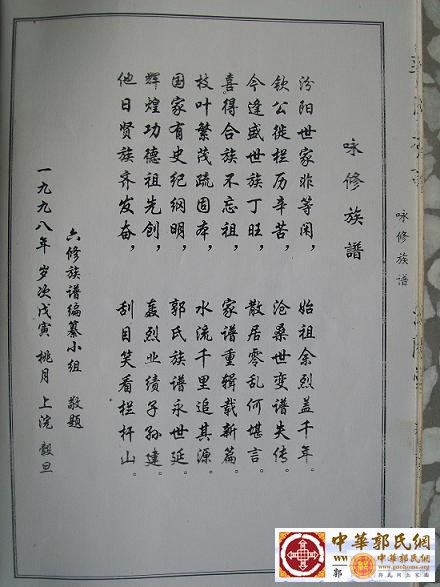 咏修族谱
汾阳世家非等闲，始祖余烈盖千年。
钦公徙栏历辛苦，沧桑世变谱失传。
今逢盛世族丁旺，散居零乱何堪言。
喜得合族不忘祖，家谱重辑载新篇。
枝叶繁茂疏固本，水流千里追其源。
国家有史纪纲明，郭氏族谱永世延。
辉煌功德祖先创，轰烈业绩子孙建。
他日贤族齐发奋，刮目笑看栏杆山。
六修族谱编纂小组 敬题
一九九八年 岁次戊寅 桃月 上浣 毂旦
咏修族谱
中華郭氏網
中華郭氏網